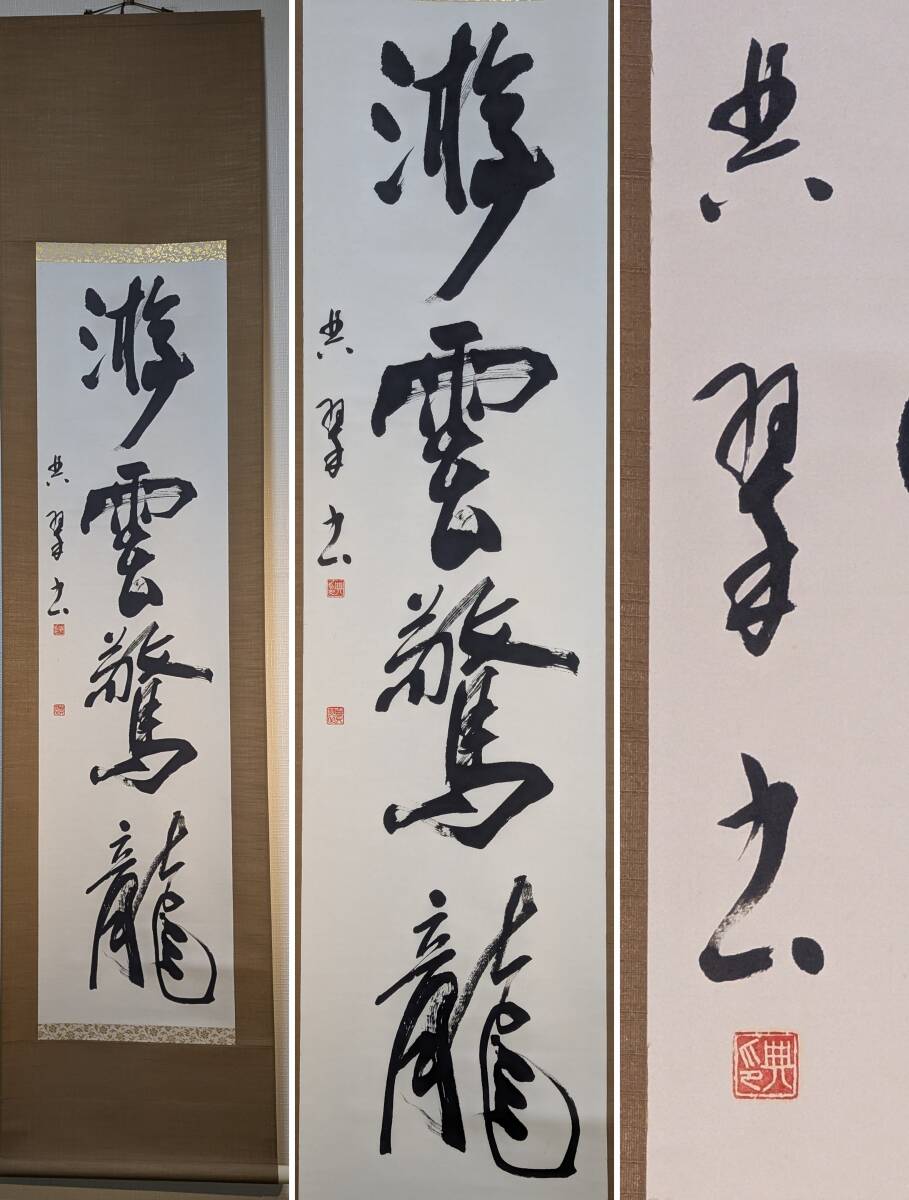 游雲驚龍
典翠書
游雲驚龍
典翠書
典翠書
典印